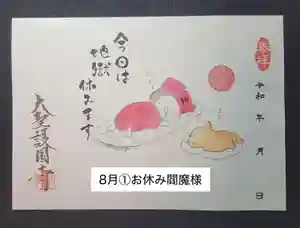 奉拝
令和 年 月 日
今日は
地獄
休みます
大聖護国寺
8月①お休み閻魔様